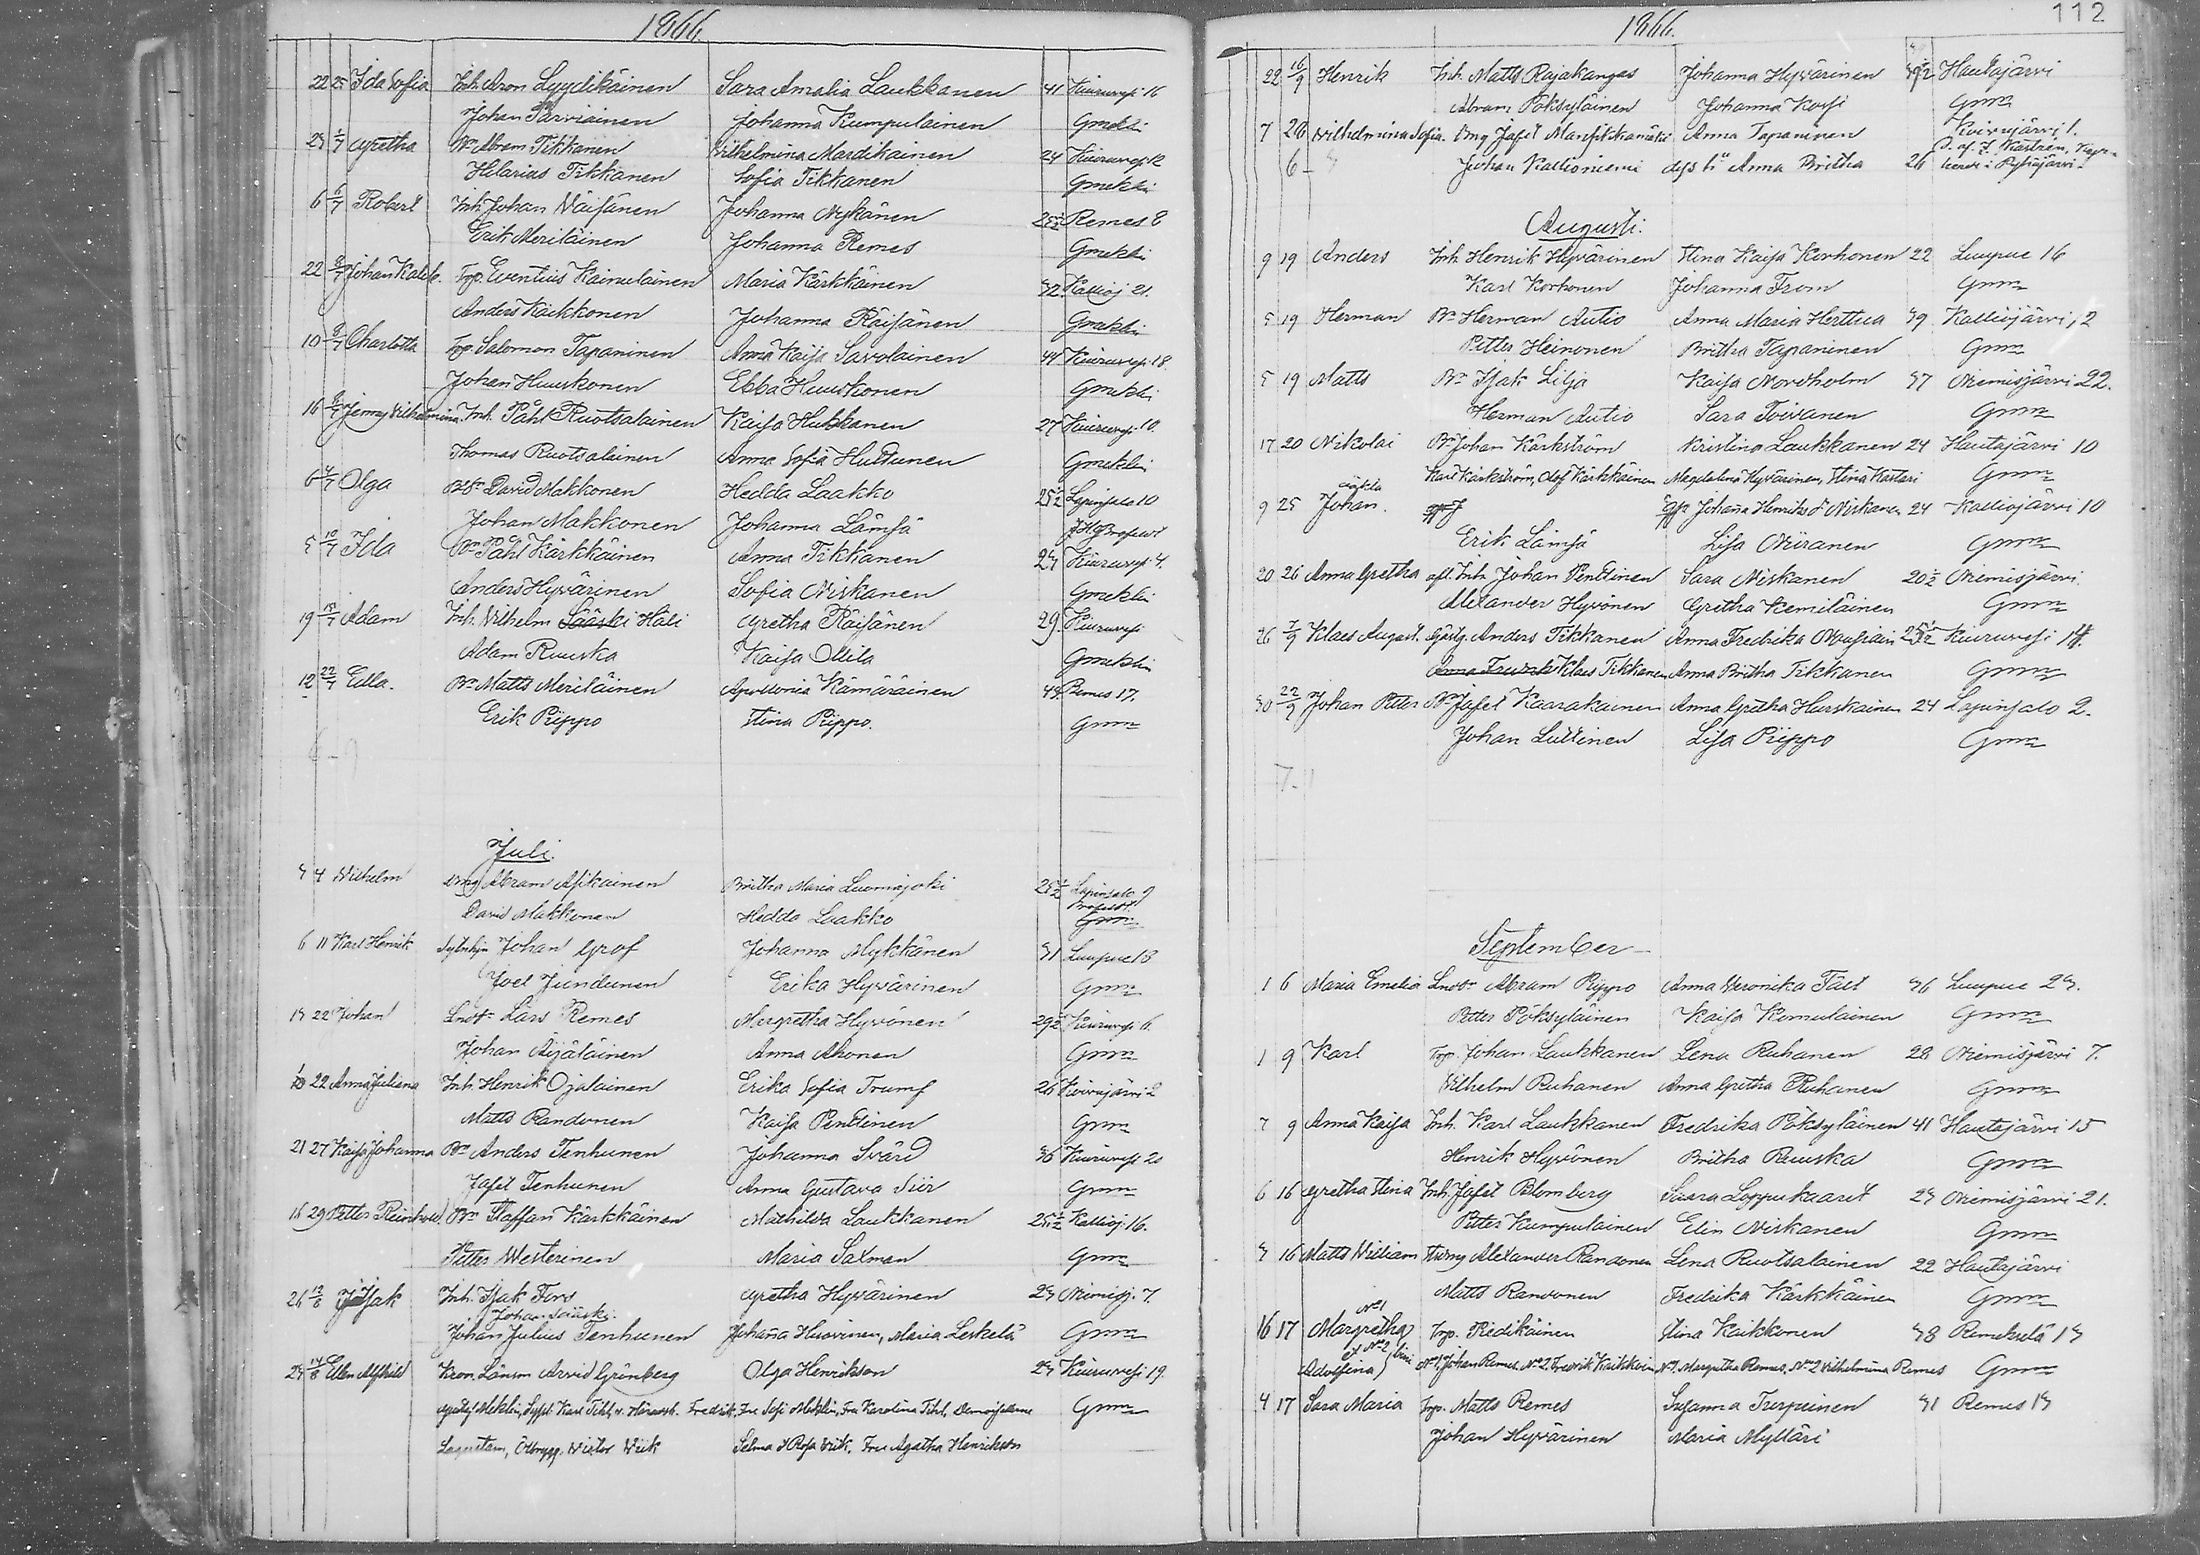 1866.
22 25 Ida Sofia Inh. Aron Lyydikäinen Sara Amalia Laukkanen 41 Kiuruvesi 16
Johan Parviainen Johanna Kumpulainen Gmeklin
1/7 Gretha Bn Abram Tikkanen Wilhelmina Mardikainen 24 Kiuruvesi 12
Hilarius Tikkanen Sofia Tikkanen Gmeklin
6 6/7 Robert Inh. Johan Väisänen Johanna Nykänen 25 1/2 Remes 8
Erik Meriläinen Johanna Remes Gmeklin
22 8/7 Johan Kaleb. Torp. Eventius Kainulainen Maria Kärkkäinen 32 Kallioj 21.
Anders Kaikkonen Johanna Räisänen Gmeklin
10 8/7 Charlotta Torp. Salomon Tapaninen Anna Kaisa Savolainen 44 Kiuruvesi 18
Johan Huuskonen Ebba Huuskonen Gmeklin
16 8/7 Jenny Vilhelmina Inh. Påhl Ruotsalainen Kaisa Hukkanen 27 Kiuruvesi 10.
Thomas Ruotsalainen Anna Sofia Huttunen Gmeklin
6 Olga David Makkonen Hedda Laakko 25 1/2 Lapinsalo 10
Johan Makkonen Johanna Lämsä
5 10/7 Ida Bn Påhl Kärkkäinen Anna Tikkanen Kiuruvesi 4.
Anders Hyvärinen Sofia Niskanen Gmeklin
19 Adam Inh. Vilhelm Sääski Hali Gretha Räisänen 29 Kiuruvesi
Adam Ruuska Kaisa Ollila Gmeklin
12 22/7 Edla. Bn Matts Meriläinen Apollonia Kämäräinen Remes 17.
Erik Piippo Stina Piippo. Gmn
Juli.
4 Wilhelm Abram Asikainen Britha Maria Luomajoki 25 1/2 Lapinsalo 9
David Makkonen Hedda Laakko Gmn
6 11 Karl Henrik Johan Grof Johanna Mykkänen 31 Luupue 13
Joel Jundunen Erika Hyvärinen Gmn
22 Johan Lars Remes Margretha Hyvönen 29 1/2 Kiuruvesi 6.
Johan Äijäläinen Anna Ahonen Gmn
22 Anna Juliana Inh. Henrik Ojalainen Erika Sofia Trumf 26 Koivujärvi 2
Matts Randonen Kaisa Penttinen Gmn
21 27 Kaisa Johanna Bn Anders Tenhunen Johanna Svärd 36 Kiuruvesi 20
Jafet Tenhunen Anna Gustava Siir Gmn
15 29 Petter Reinhold Bn Staffan Kärkkäinen Mathilda Laukkanen Kallioj. 16.
Petter Westerinen Maria Salman Gmn
26 12/8 Isak Inh. Isak Fors Gretha Hyvärinen Niemisj. 7.
Johan Sääski
Johan Julius Tenhunen Johanna Huovinen, Maria Leskelä Gmn
14/8 Ellen Alfhild Kron. Länsm Arvid Grönberg Olga Henrikson Kiuruvesi 19.
Gustaf Meklin, Fredrik, Fru Sofi Meklin, Fru Karolina Demoisellerna Gmn
Viktor Wiik Selma & Rosa Wiik, Fru Agatha Henrikson
1866.
112
22 16/9 Henrik Inh. Matts Rajakangas Johanna Hyvärinen Hautajärvi
Abram Pöksyläinen Johanna Korpi Gmn
7 26 Wilhelmina Sofia. Jafet Anna Tapaninen Koivujärvi 1.
Johan Kallioniemi Anna Britha 26
Augusti.
9 19 Anders Inh. Henrik Hyvärinen Stina Kaisa Korhonen 22 Luupue 16
Karl Korhonen Johanna From Gmn
5 19 Herman Bn Herman Autio Anna Maria Herttua 39 Kalliojärvi, 2
Petter Heinonen Britha Tapaninen Gmn
5 19 Matts Bn Isak Lilja Kaisa Nordholm 37 Niemisjärvi 22.
Herman Autio Sara Toivanen Gmn
17 20 Nikolai Bn Johan Kärkström Kristina Laukkanen 24 Hautajärvi 10
Karl Kärkström, Olof Kärkkäinen Magdalena Hyvärinen, Stina Kastari Gmn
oäkta
9 25 Johan. Johanna Henriks dr Niskanen 24 Kalliojärvi 10
Erik Lämsä Lisa Niiranen Gmn
20 26 Anna Gretha afl. Inh. Johan Penttinen Sara Niskanen 20 1/2 Niemisjärvi
Alexander Hyvönen Gretha Kemiläinen Gmn
26 7/9 Klaes August. Anders Tikkanen Anna Fredrika Kiuruvesi 14.
Klaes Tikkanen Anna Britha Tikkanen Gmn
30 22/9 Johan Petter Bn Jafet Kaarakainen Anna Gretha Hurskainen 24 Lapinsalo 2.
Johan Luttinen Lisa Piippo Gmn
September
1 6 Maria Emelia Abram Piippo Anna Veronika Tält 36 Luupue
Petter Pöksyläinen Kaisa Komulainen Gmn
1 9 Karl Torp. Johan Laukkanen Lena Ruhanen 28 Niemisjärvi 7.
Vilhelm Ruhanen Anna Gretha Ruhanen Gmn
7 9 Anna Kaisa Inh. Karl Laukkanen Fredrika Pöksyläinen 41 Hautajärvi 15
Henrik Hyvönen Britha Ruuska Gmn
6 16 Gretha Stina Inh. Jafet Blomberg Saara Loppukaarit Niemisjärvi 21.
Petter Kumpulainen Elin Niskanen Gmn
16 Matts William Alexander Randonen Lena Ruotsalainen 22 Hautajärvi
Matts Randonen Fredrika Kärkkäinen Gmn
16 17 No 1 Margretha Torp. Riedikäinen Stina Kaikkonen 38 Remeskylä
et No 2 Adolfina bini No 1. Johan Remes, No 2. Fredrik Kaikkonen No 1. Margretha Remes, No 2 Vilhelmina Remes Gmn
4 17 Sara Maria Torp. Matts Remes Susanna Turpeinen 31 Remes
Johan Hyvärinen Maria Myllari